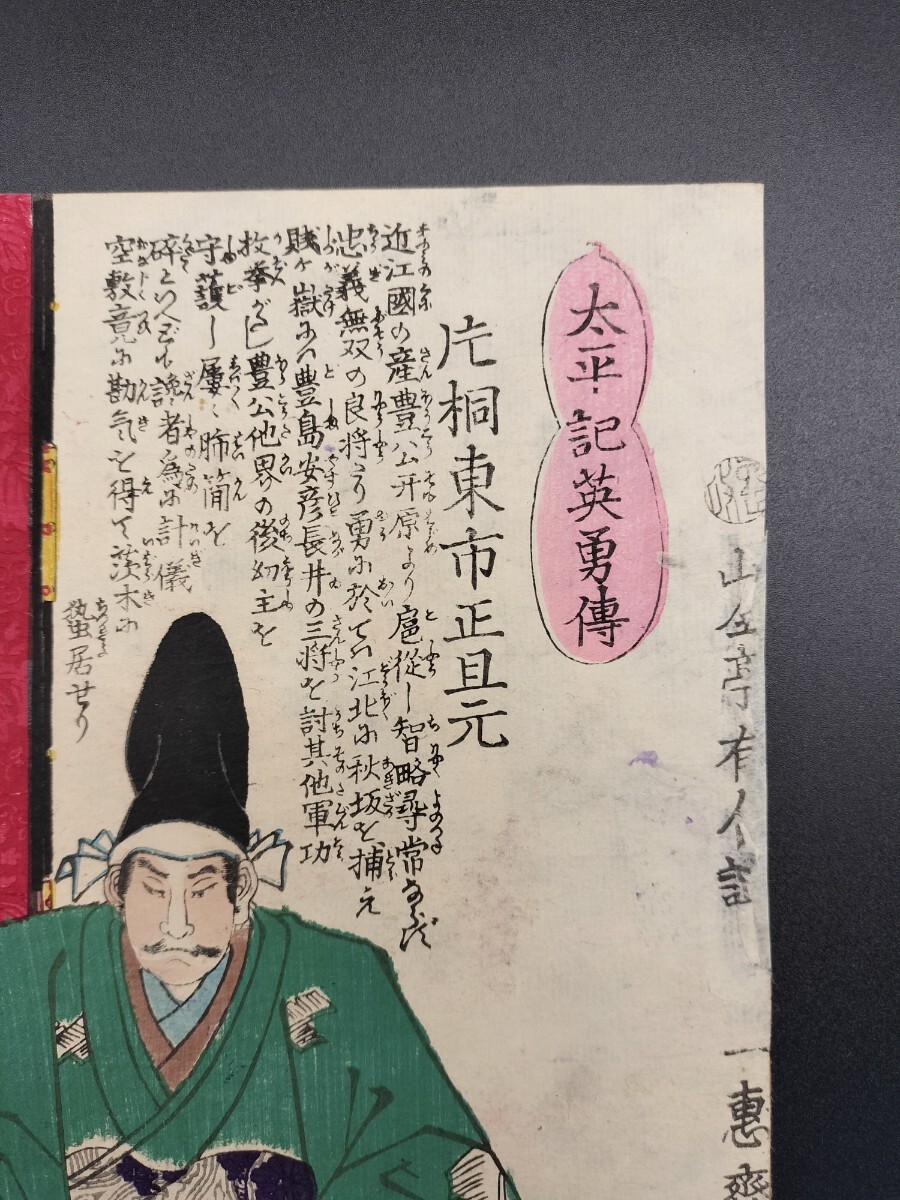 山々亭有人記
一惠齋
太平記英勇傳
片桐東市正且元
近江國の産豊公开原より扈從し智略尋常ならず
忠義無双の良将なり勇に於ては江北に秋坂を捕え
賤ヶ嶽には豊島安彦長井の三将を討其他軍功
枚挙がたし豊公他界の後幼主を
守護し屢々肺簡を
碎といへども讒者為に計儀
空敷竟に勘氣を得て茨木に
蟄居せり